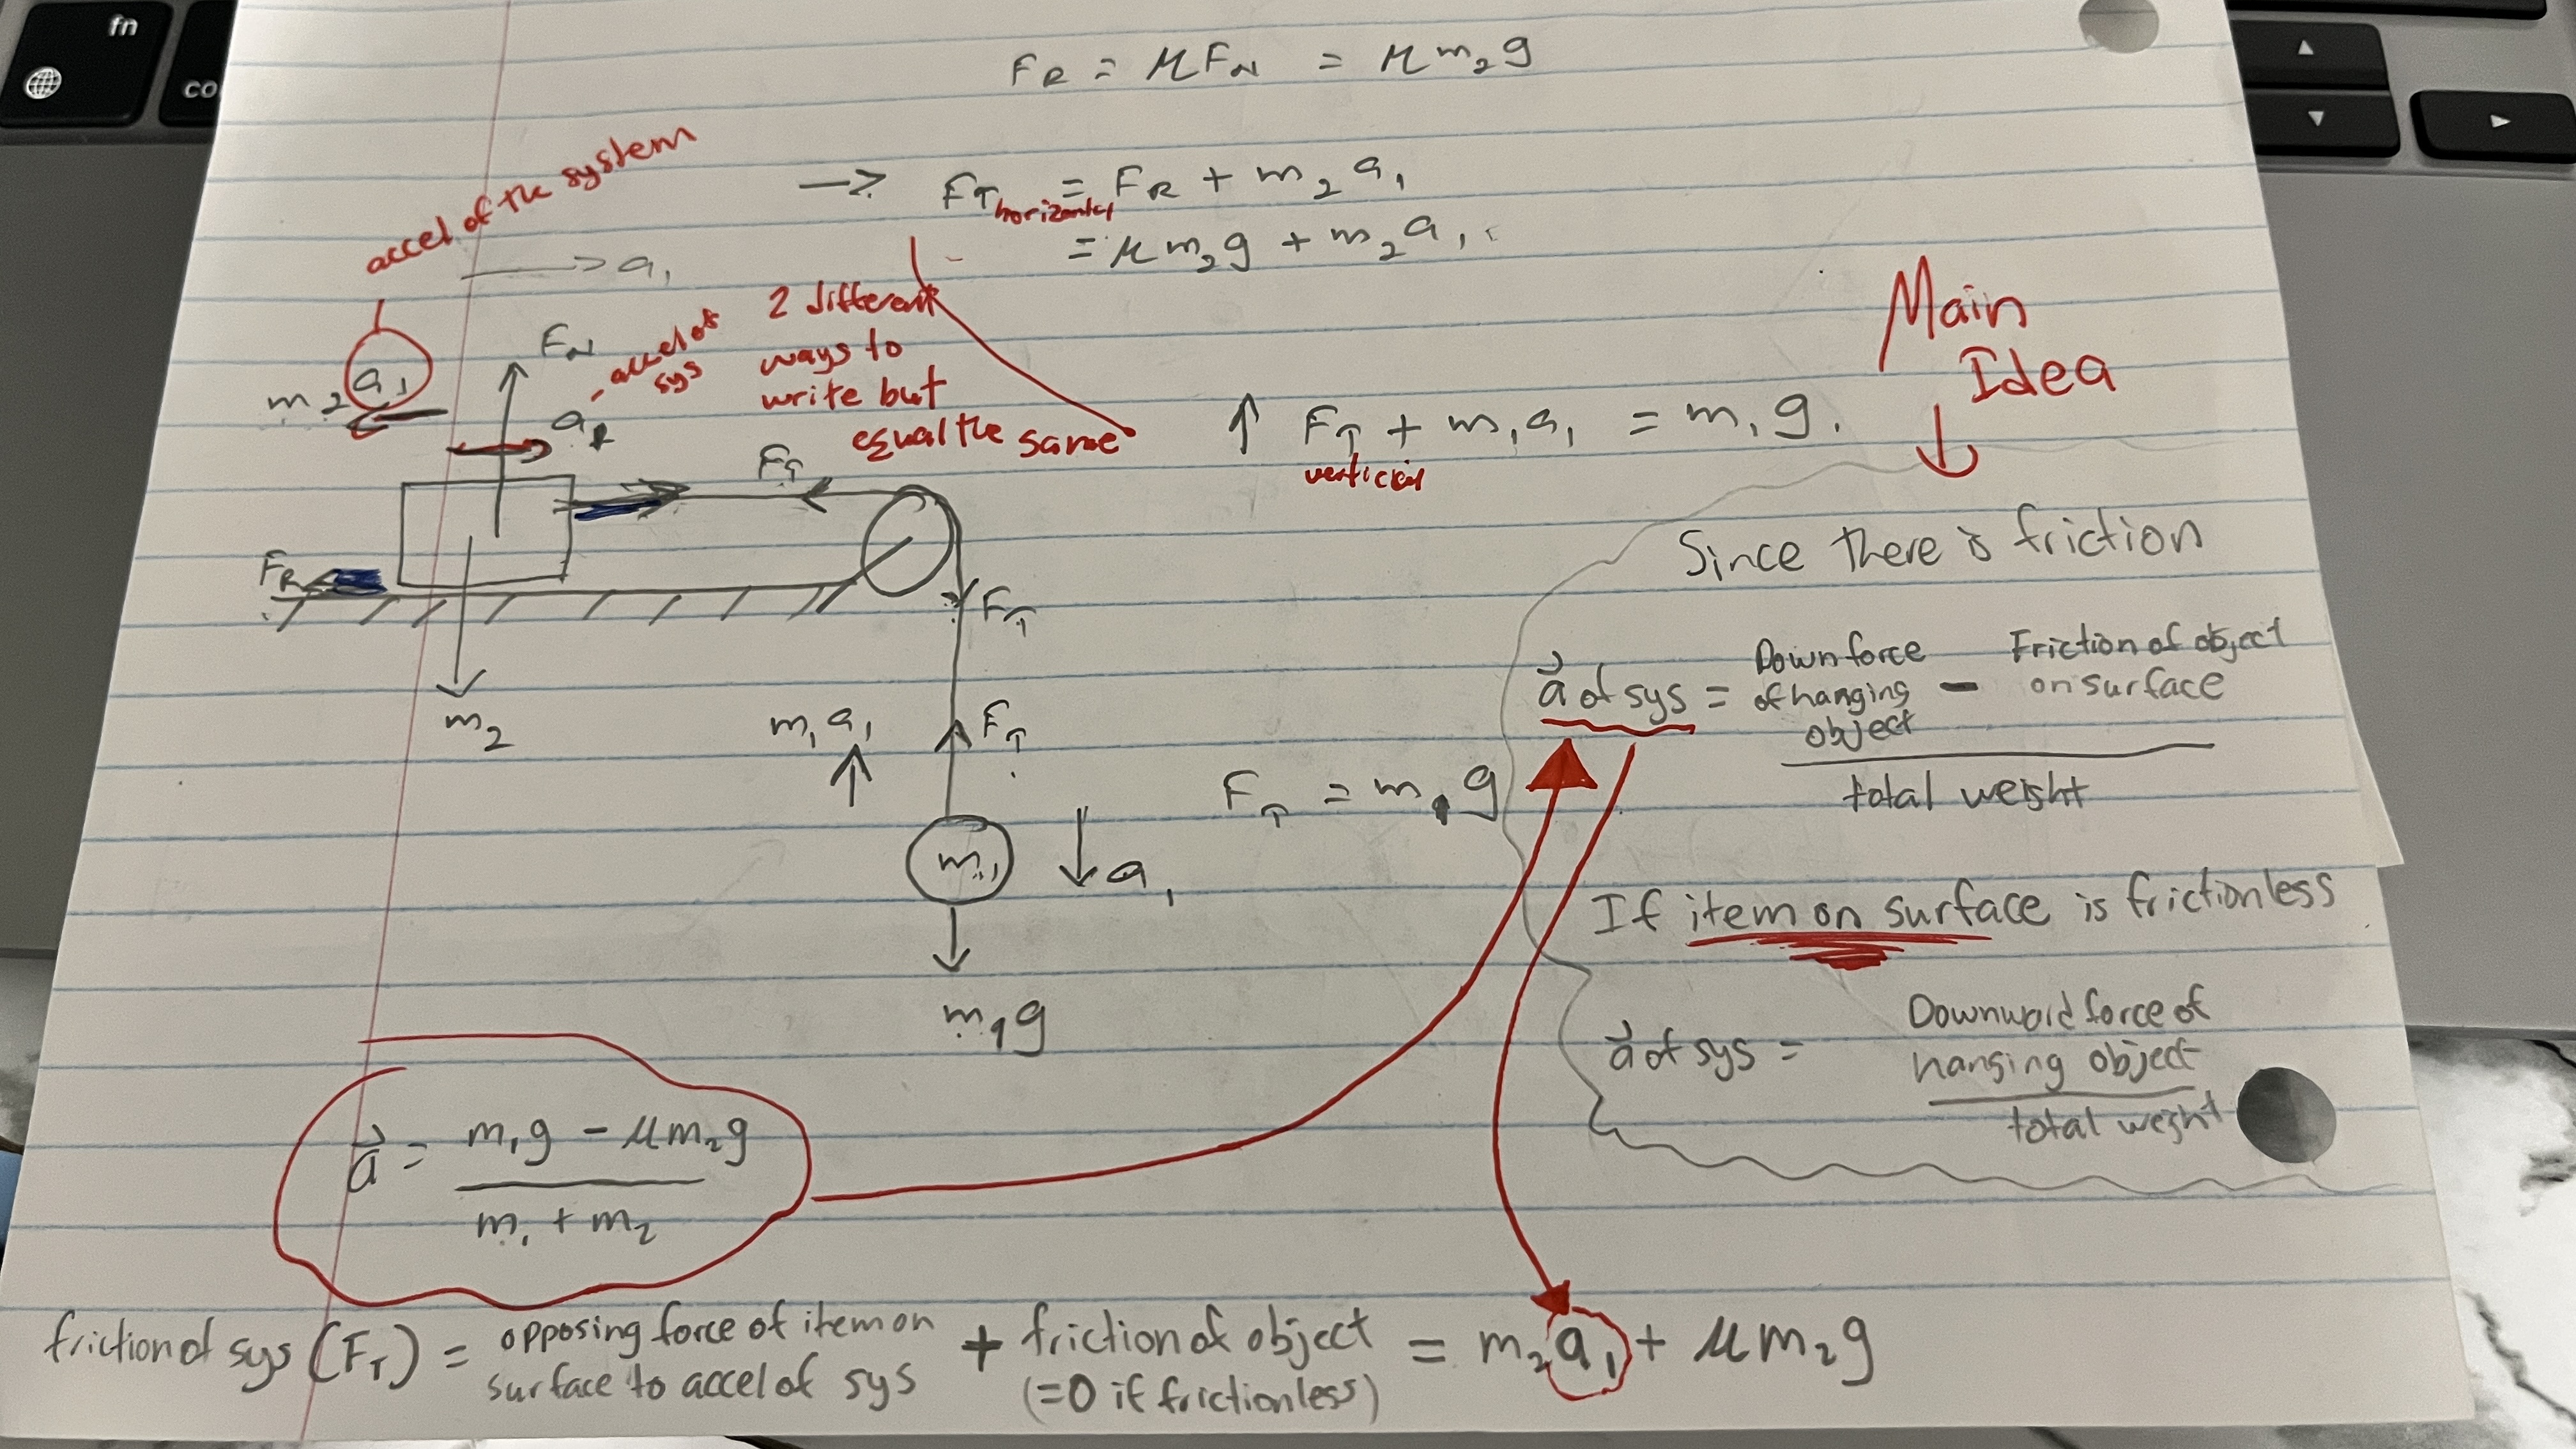 fn
co
F_R = μF_N = μm₂g
accel of the system
→ F_T horizontal = F_R + m₂a₁
= μm₂g + m₂a₁
→ a₁
2 different
ways to
write but
equal the same
F_N
accel of
sys
m₂a₁
a₁
↑ F_T + m₁a₁ = m₁g.
verticial
Main
Idea
↓
F_T
F_R
F_T
m₂
m₁a₁
F_T
m₁
↓a₁
m₁g
F_T = m₁g
Since there is friction
a⃗ of sys = Down force of hanging object − Friction of object on surface
total weight
If item on surface is frictionless
a⃗ of sys = Downword force of hanging object
total weight
a⃗ = m₁g − μm₂g
m₁ + m₂
friction of sys (F_T) = opposing force of item on surface to accel of sys + friction of object (=0 if frictionless) = m₂a₁ + μm₂g